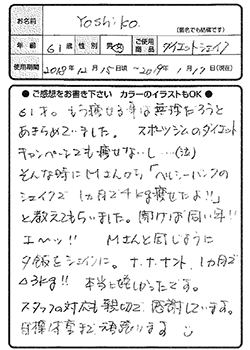 お名前
Yoshiko
(匿名でも結構です)
年齢 61歳 性別 男・女 ご使用商品 ダイエットシェイク
使用期間 2018年12月15日頃〜2019年1月17日(現在)
●ご感想をお書き下さい カラーのイラストもOK●
61才。もう痩せる事は無理だろうと
あきらめていました。スポーツジムのダイエット
キャンペーンでも痩せないし…(泣)
そんな時にMさんから「ヘルシーバンクの
シェイクで1カ月で4kg痩せたよ!!」
と教えてもらいました。聞けば同い年!!
エ〜ッ!! Mさんと同じように
夕飯をシェイクに。ナ、ナ、ナント、1カ月で
△3kg!! 本当に嬉しかったです。
スタッフの対応も親切で感謝しています。
目標体重まで頑張ります